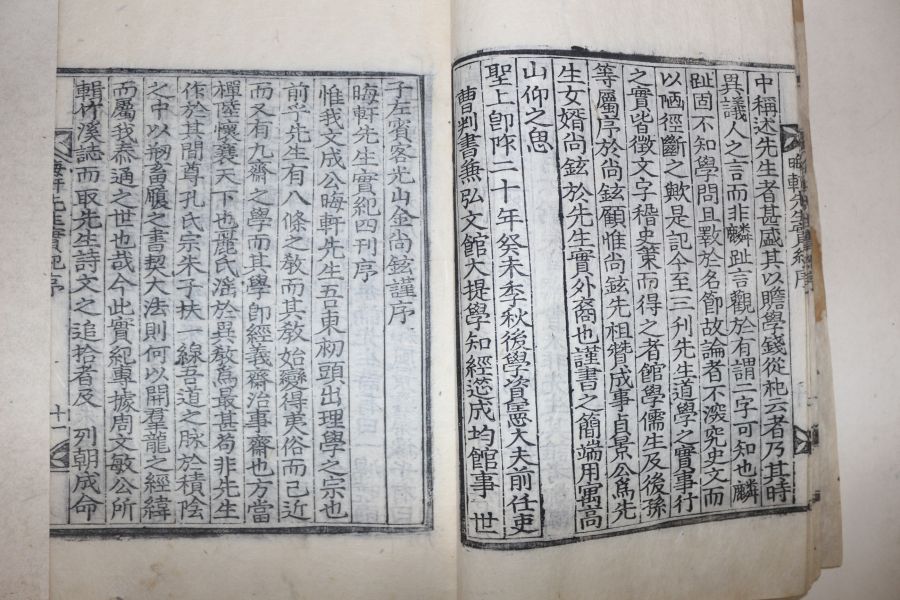 中稱述先生者甚盛其以贍學錢從祀云者乃其時
異議人之言而非麟趾言觀於有謂二字可知也麟
趾固不知學問且斁於名節故論者不深究史文而
以陋徑斷之歟是記今至三刊先生道學之實事行
之實皆徵文字稽史策而得之者館學儒生及後孫
等屬序於尚鉉顧惟尚鉉先相贊成事貞景公爲先
生女婿尚鉉於先生實外裔也謹書之簡端用寓高
山仰之思
聖上卽阼二十年癸未季秋後學資憲大夫前任吏
曹判書兼弘文館大提學知經筵成均館事 世
晦軒先生實紀序
子左賓客光山金尚鉉謹序
晦軒先生實紀四刊序
惟我文成公晦軒先生吾東初頭出理學之宗也
前乎先生有八條之敎而其敎始變得夷俗而已近
而又有九齋之學而其學卽經義齋治事齋也方當
懷襄天下也麗氏溺於異敎爲最甚苟非先生
作於其間尊孔氏宗朱子扶一線吾道之脉於積陰
之中以刱畜贗之書契大法則何以開羣龍之經緯
而屬我泰通之世也哉今此實紀專據周文敏公所
輯竹溪誌而取先生詩文之追拾者及 列朝成命
晦軒先生實紀序
十一